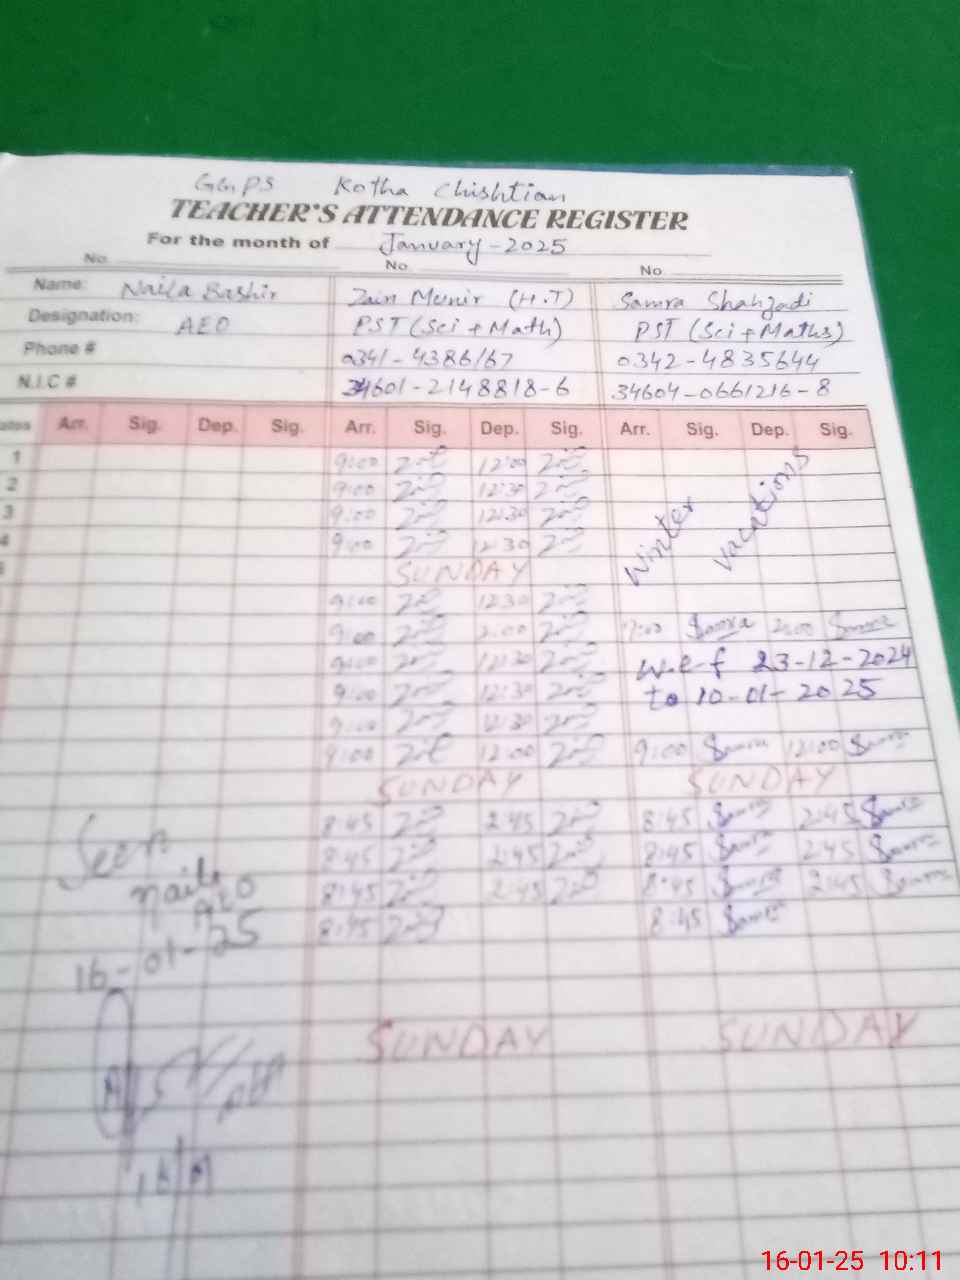 GGPS Kotha Chishtian
TEACHER'S ATTENDANCE REGISTER
For the month of January-2025
No. No. No.
Name: Naila Bashir Zain Munir (H.T) Samra Shahzadi
Designation: AEO PST (Sci + Math) PST (Sci + Maths)
Phone # 0341-4386167 0342-4835644
N.I.C # 34601-2148818-6 34604-0661216-8
Arr. Sig. Dep. Sig. Arr. Sig. Dep. Sig. Arr. Sig. Dep. Sig.
1 9:00 12:00
2 9:00 12:30
3 9:00 12:30
4 9:00 12:30
Winter vacations
SUNDAY
9:00 12:30
9:00 2:00 9:00 Samra 2:00 Samra
9:00 12:30 w.e.f 23-12-2024
9:00 12:30 to 10-01-2025
9:00 12:30
9:00 12:00 9:00 Samra 12:00 Samra
SUNDAY SUNDAY
8:45 2:45 8:45 Samra 2:45 Samra
8:45 2:45 8:45 Samra 2:45 Samra
8:45 2:45 8:45 Samra 2:45 Samra
8:45 8:45 Samra
Seen
Naila
AEO
16-01-25
SUNDAY SUNDAY
16-01-25 10:11